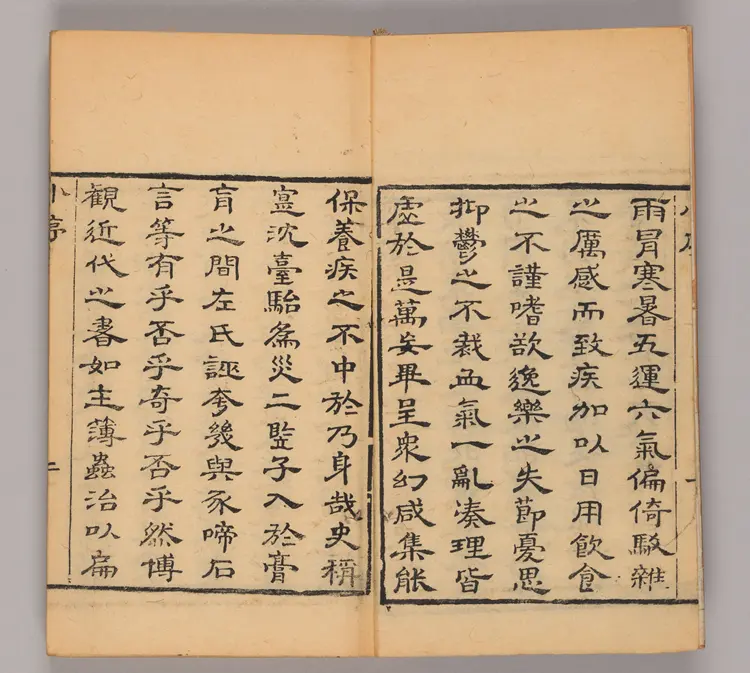 雨冒寒暑五運六氣偏倚駁雜
之厲感而致疾加以日用飲食
之不謹嗜欲逸樂之失節憂思
抑鬱之不裁血氣一亂凑理皆
虛於是萬妄畢呈衆幻咸集能
保養疾之不中於乃身哉史稱
寔沈臺駘爲災二豎子入於膏
肓之間左氏誣夸幾與豕啼石
言等有乎否乎奇乎否乎然博
觀近代之書如主簿蟲治以扁
小序 二